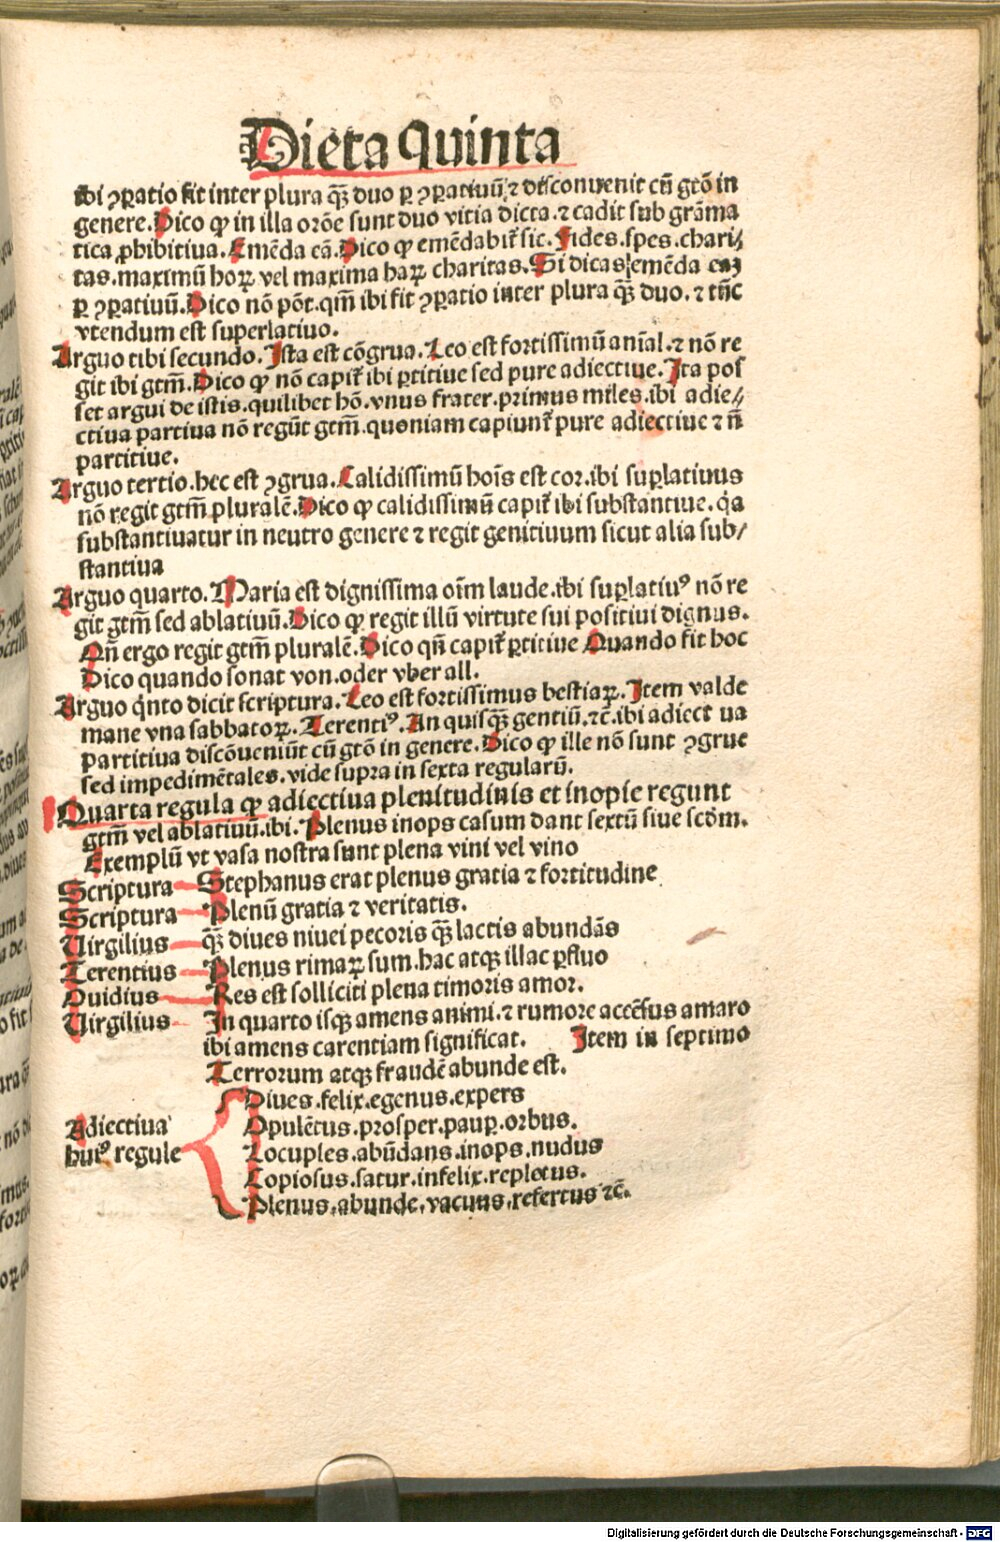 Dieta quinta
ibi ꝯꝑatio fit inter plura qꝫ̄ duo ꝑ ꝯꝑatiuū ⁊ disconuenit cū gtō in
genere. Dico ꝙ in illa orōe sunt duo vitia dicta. ⁊ cadit sub grāma
tica ꝓhibitiua. Emēda eā. Dico ꝙ emēdabit᷑ sic. Fides. spes. chari⸗
tas. maximū hoꝝ vel maxima haꝝ charitas. Si dicas emēda eaꝫ
ꝑ ꝯꝑatiuū. Dico nō pōt. qm̄ ibi fit ꝯꝑatio inter plura qꝫ̄ duo. ⁊ tūc
vtendum est superlatiuo.
Arguo tibi secundo. Ista est cōgrua. Leo est fortissimū anīal. ⁊ nō re
git ibi gtm̄. Dico ꝙ nō capit᷑ ibi ꝑtitiue sed pure adiectiue. Ita pos
set argui de istis. quilibet hō. vnus frater. primus miles. ibi adie⸗
ctiua partiua nō regūt gtm̄. quoniam capiunt᷑ pure adiectiue ⁊ n̄
partitiue.
Arguo tertio. hec est ꝯgrua. Calidissimū hoīs est cor. ibi suꝑlatiuus
nō regit gtm̄ pluralē. Dico ꝙ calidissimū capit᷑ ibi substantiue. q̇a
substantiuatur in neutro genere ⁊ regit genitiuum sicut alia sub/
stantiua
Arguo quarto. Maria est dignissima oīm laude. ibi suꝑlatiuꝰ nō re
git gtm̄ sed ablatiuū. Dico ꝙ regit illū virtute sui positiui dignus.
Qn̄ ergo regit gtm̄ pluralē. Dico qn̄ capit᷑ ꝑtitiue Quando fit hoc
Dico quando sonat von. oder vber all.
Arguo q̇nto dicit scriptura. Leo est fortissimus bestiaꝝ. Item valde
mane vna sabbatoꝝ. Terentiꝰ. An quisqꝫ̄ gentiū. ⁊c̄. ibi adiect ua
partitiua discōueniūt cū gtō in genere. Dico ꝙ ille nō sunt ꝯgrue
sed impedimētales. vide supra in sexta regularū.
Quarta regula ꝙ adiectiua plenitudinis et inopie regunt
gtm̄ vel ablatiuū. ibi. Plenus inops casum dant sextū siue scdm.
Exemplū vt vasa nostra sunt plena vini vel vino
Scriptura Stephanus erat plenus gratia ⁊ fortitudine
Scriptura Plenū gratia ⁊ veritatis.
Uirgilius qꝫ̄ diues niuei pecoris qꝫ̄ lactis abundās
Terentius Plenus rimaꝝ sum. hac atqꝫ illac ꝑfluo
Ouidius Res est solliciti plena timoris amor.
Uirgilius In quarto isqꝫ amens animi. ⁊ rumore accēsus amaro
ibi amens carentiam significat. Item in septimo
Terrorum atqꝫ fraudē abunde est.
Adiectiua
huiꝰ regule
Diues. felix. egenus. expers
Opulētus. prosper. pauꝑ. orbus.
Locuples. abūdans. inops. nudus
Copiosus. satur. infelix. repletus.
Plenus. abunde. vacuus. refertus ⁊c̄.
Digitalisierung gefördert durch die Deutsche Forschungsgemeinschaft - DFG